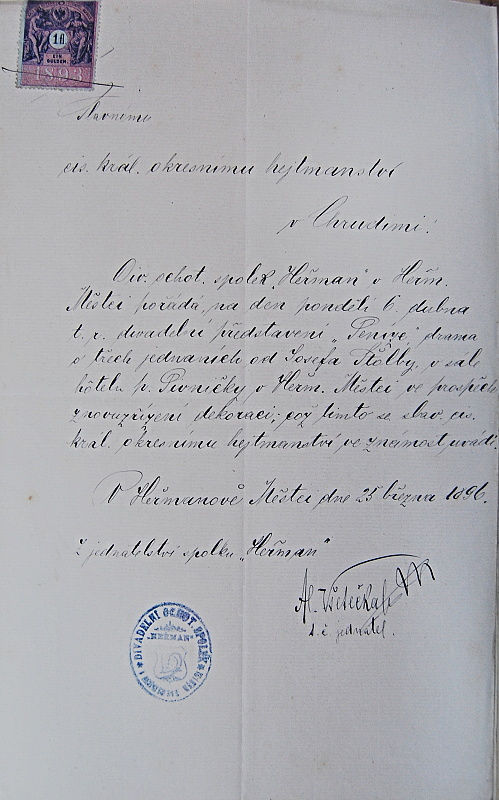 1 fl
EIN
GULDEN
1893
Slavnému
cis. král. okresnímu hejtmanství
v Chrudimi.
Div. ochot. spolek „Heřman" v Heřm.
Městci pořádá na den pondělí 6. dubna
t. r. divadelní představení „Peníze", drama
o třech jednáních od Josefa Štolby, v sále
hôtelu p. Pivničky v Heřm. Městci ve prospěch
znovuzřízení dekorací; což tímto se slav. cis.
král. okresnímu hejtmanství ve známost uvádí.
V Heřmanově Městci dne 25 března 1896.
Z jednatelství spolku „Heřman"
Al. Všetečka
t. č. jednatel.
DIVADELNÍ OCHOT. SPOLEK
"HEŘMAN"